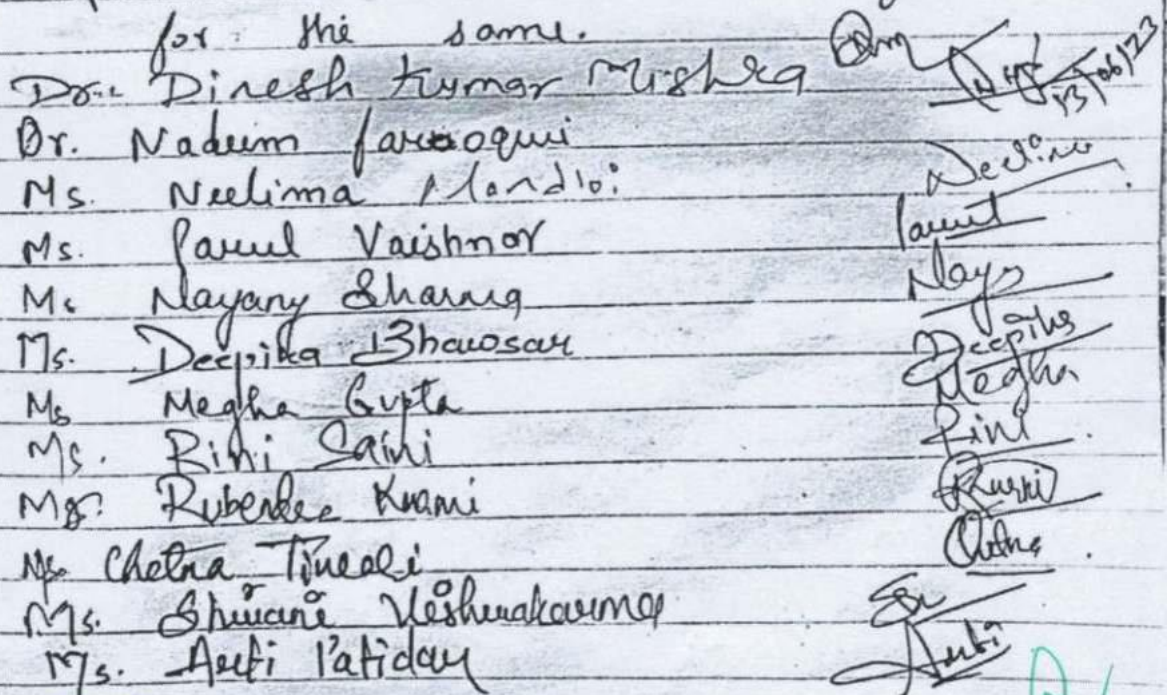 for the same.
Dr. Dinesh Kumar Mishra 13/06/23
Dr. Nadeem farooqui
Ms. Neelima Mandloi Neelima
Ms. Parul Vaishnav Parul
Ms Nayany Sharma Naya
Ms. Deepika Bhavsar Deepika
Ms Megha Gupta Megha
Ms. Rini Saini Rini
Ms. Kumi Kurmi
Ms Chetna Tiwari Chetna
Ms. Shivani Vishwakarma
Ms. Arti Patidar Arti